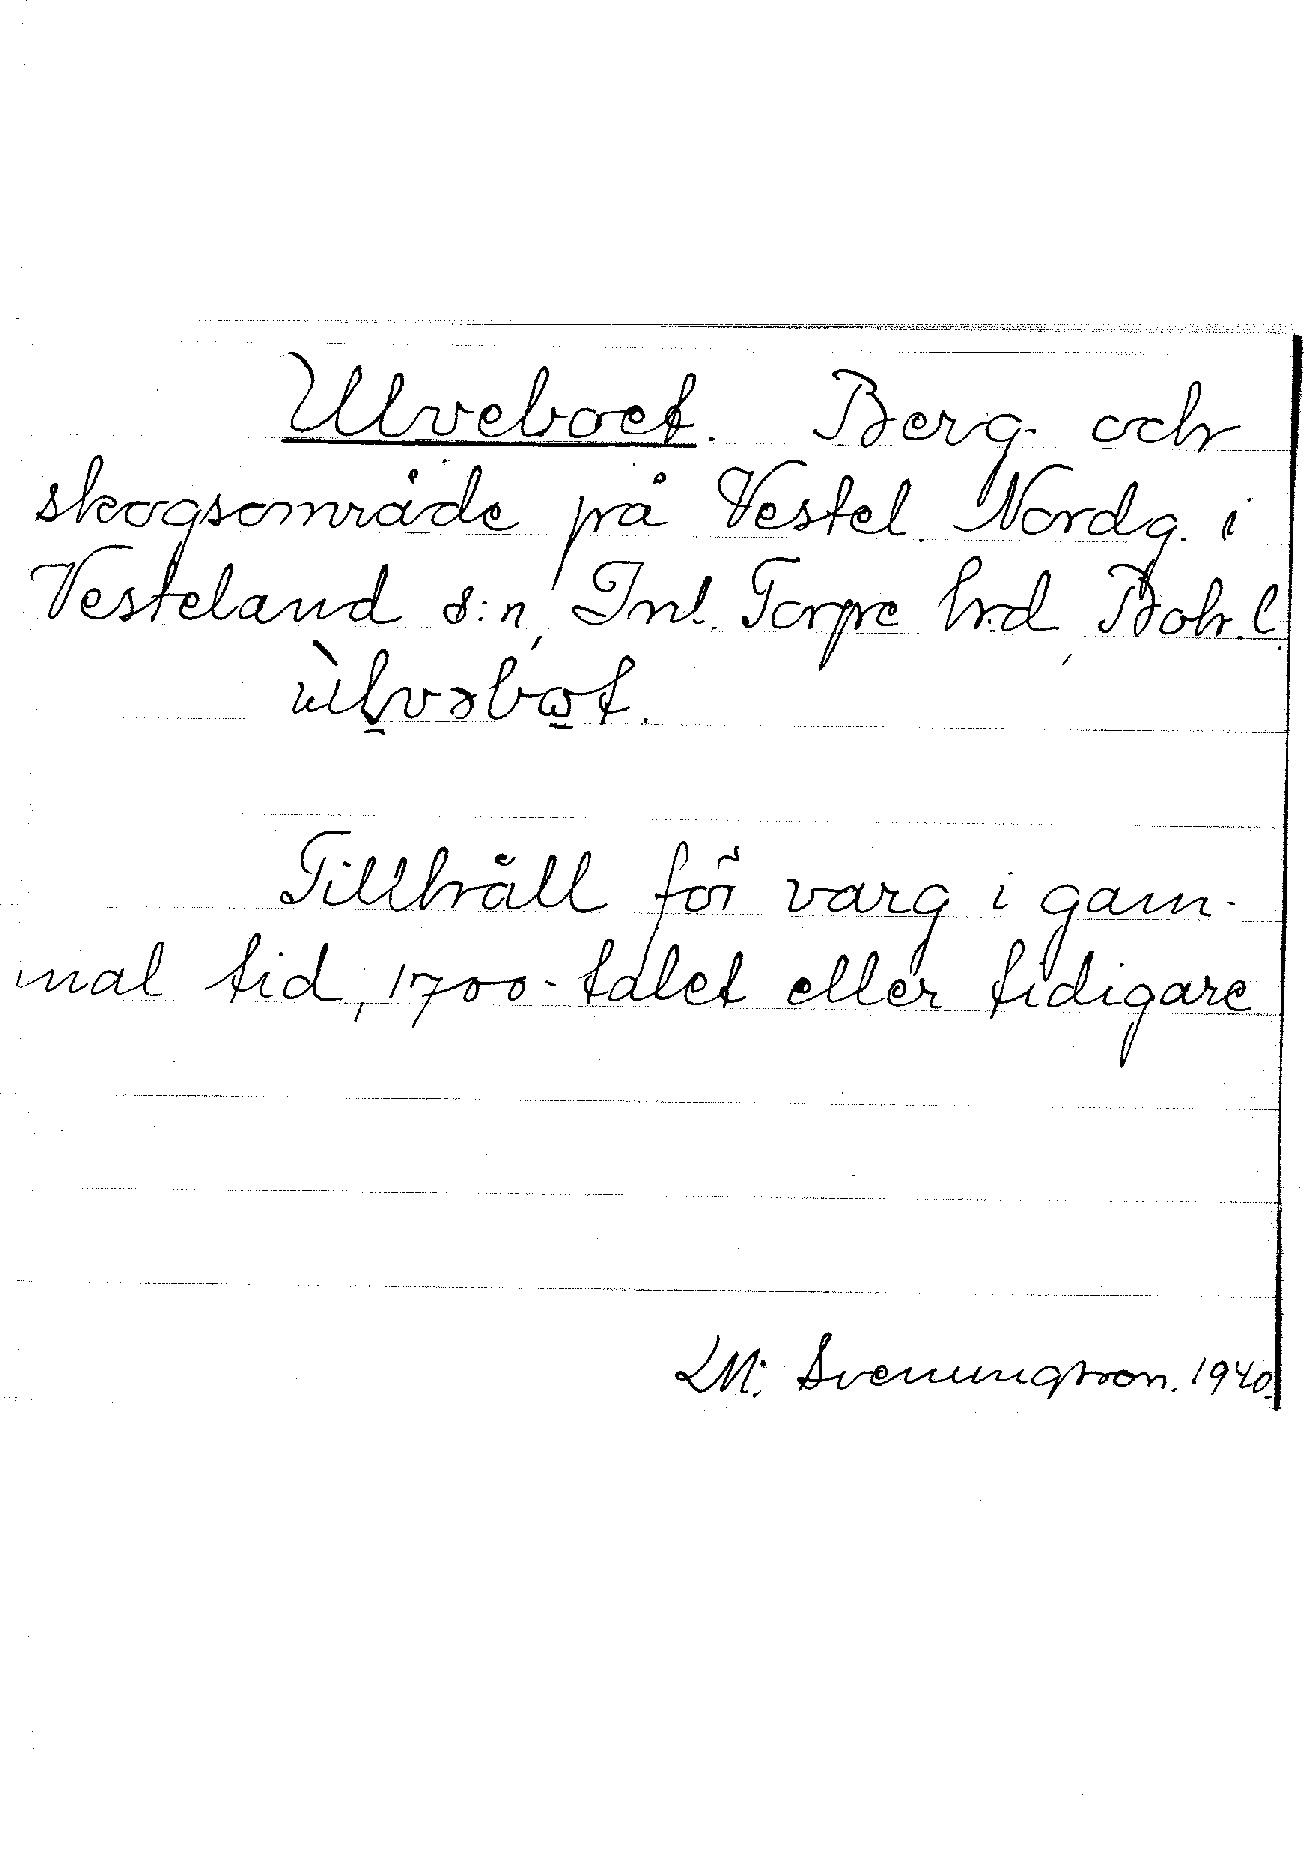 Ulveboet. Berg- och
skogsområde på Vestel. Nordg. i
Vesteland s:n, Inl. Torpe hrd, Boh. l.
ùlvəbωt.
Tillhåll för varg i gam-
mal tid, 1700-talet eller tidigare
LM. Svenungsson. 1940.